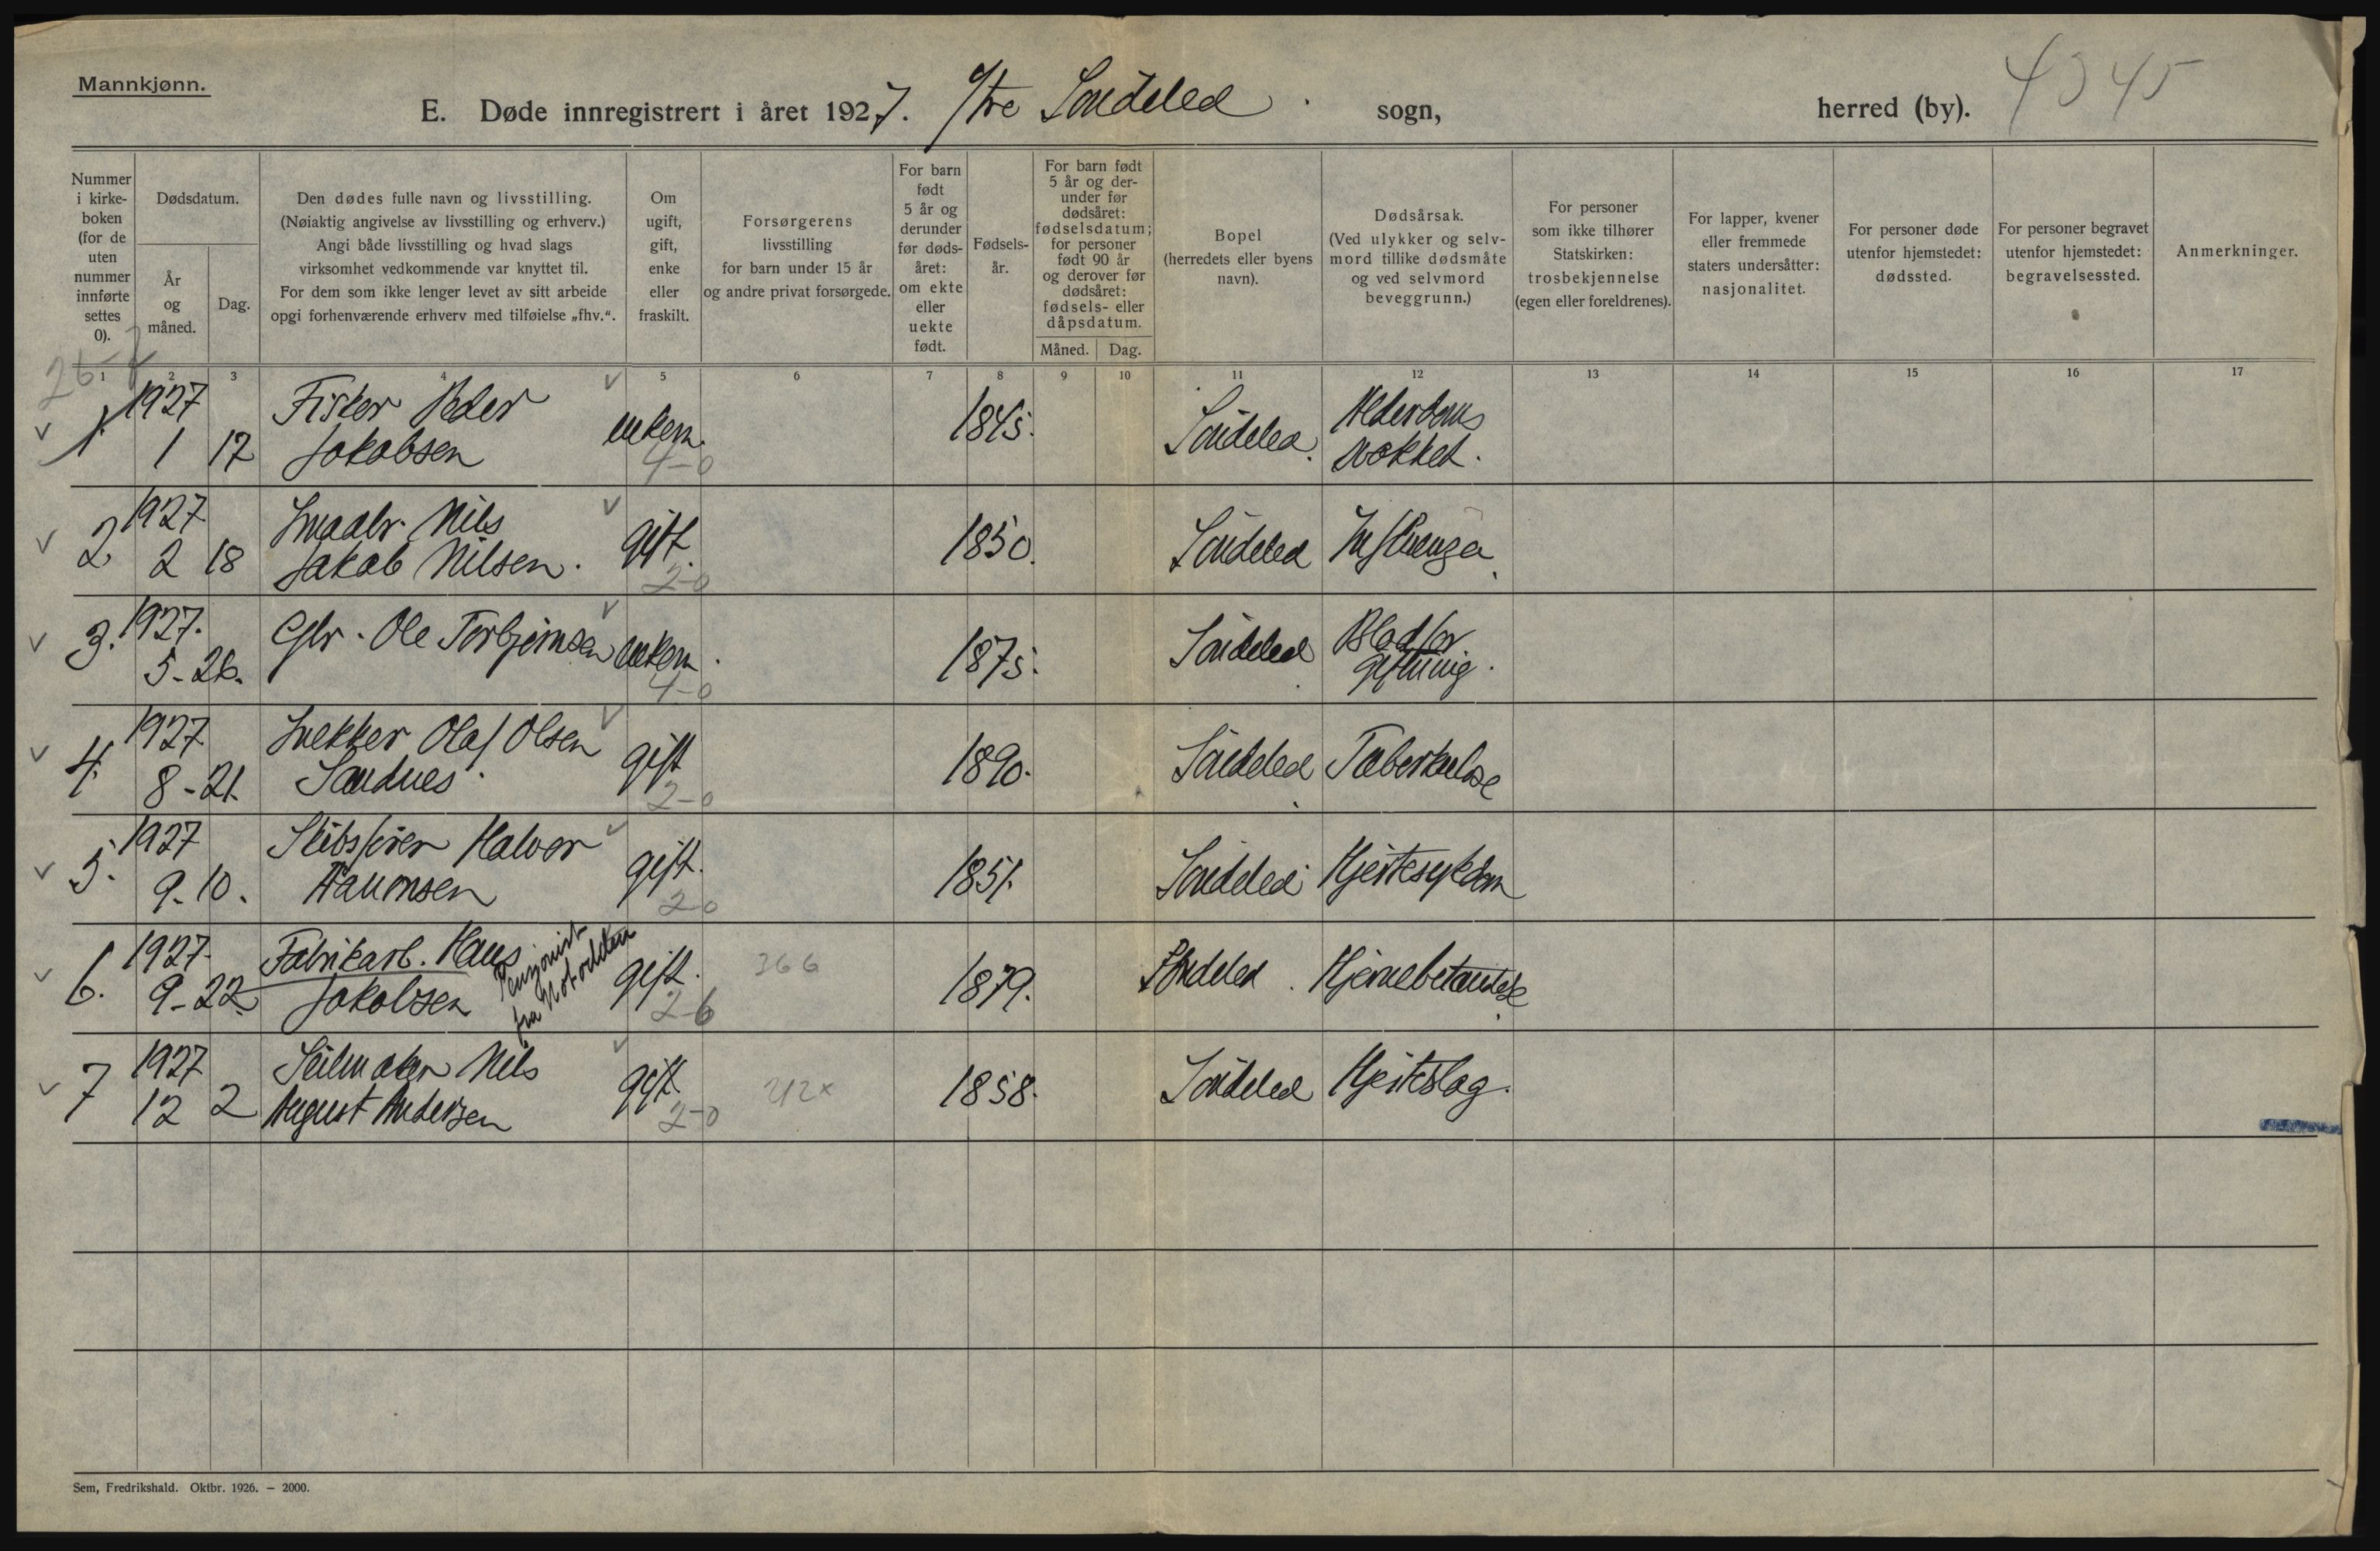 Mannkjønn.
E. Døde innregistrert i året 1927. Ytre Søndeled sogn, herred (by). 4345
Nummer i kirkeboken (for de uten nummer innførte settes 0).
Dødsdatum.
År og måned.
Dag.
Den dødes fulle navn og livsstilling.
(Nøiaktig angivelse av livsstilling og erhverv.)
Angi både livsstilling og hvad slags
virksomhet vedkommende var knyttet til.
For dem som ikke lenger levet av sitt arbeide
opgi forhenværende erhverv med tilføielse „fhv.“.
Om ugift, gift, enke eller fraskilt.
Forsørgerens
livsstilling
for barn under 15 år
og andre privat forsørgede.
For barn født 5 år og derunder før dødsåret: om ekte eller uekte født.
Fødselsår.
For barn født 5 år og derunder før dødsåret: fødselsdatum; for personer født 90 år og derover før dødsåret: fødsels- eller dåpsdatum.
Måned. Dag.
Bopel
(herredets eller byens
navn).
Dødsårsak.
(Ved ulykker og selv-
mord tillike dødsmåte
og ved selvmord
beveggrunn.)
For personer
som ikke tilhører
Statskirken:
trosbekjennelse
(egen eller foreldrenes).
For lapper, kvener
eller fremmede
staters undersåtter:
nasjonalitet.
For personer døde
utenfor hjemstedet:
dødssted.
For personer begravet
utenfor hjemstedet:
begravelsessted.
Anmerkninger.
1 2 3 4 5 6 7 8 9 10 11 12 13 14 15 16 17
1. 1927 1 17 Fisker Peder Jakobsen enkem. 4-0 1845. Søndeled. Alderdoms
2 1927 2 18 Nils Jakob Nilsen. gift. 2-0 1850. Søndeled Influenza
3. 1927. 5-26. Gbr. Ole Torbjørnsen enkem. 4-0 1875. Søndeled Blodforgiftning.
4. 1927 8-21. Snekker Olaf Olsen Sandnes. gift 2-0 1890. Søndeled Tuberkulose
5. 1927 9-10. Skibsfører Halvor Aanonsen gift. 2-0 1851. Søndeled Hjertesykdom
6. 1927. 9-22. Fabrikarb. Hans Jakobsen Pensjonist fra Notodden gift. 2-6 366 1879. Søndeled. Hjernebetændelse
7 1927 12 2 Seilmaker Nils August Andersen gift. 2-0 212x 1858. Søndeled Hjerteslag.
Sem, Fredrikshald. Oktbr. 1926. — 2000.